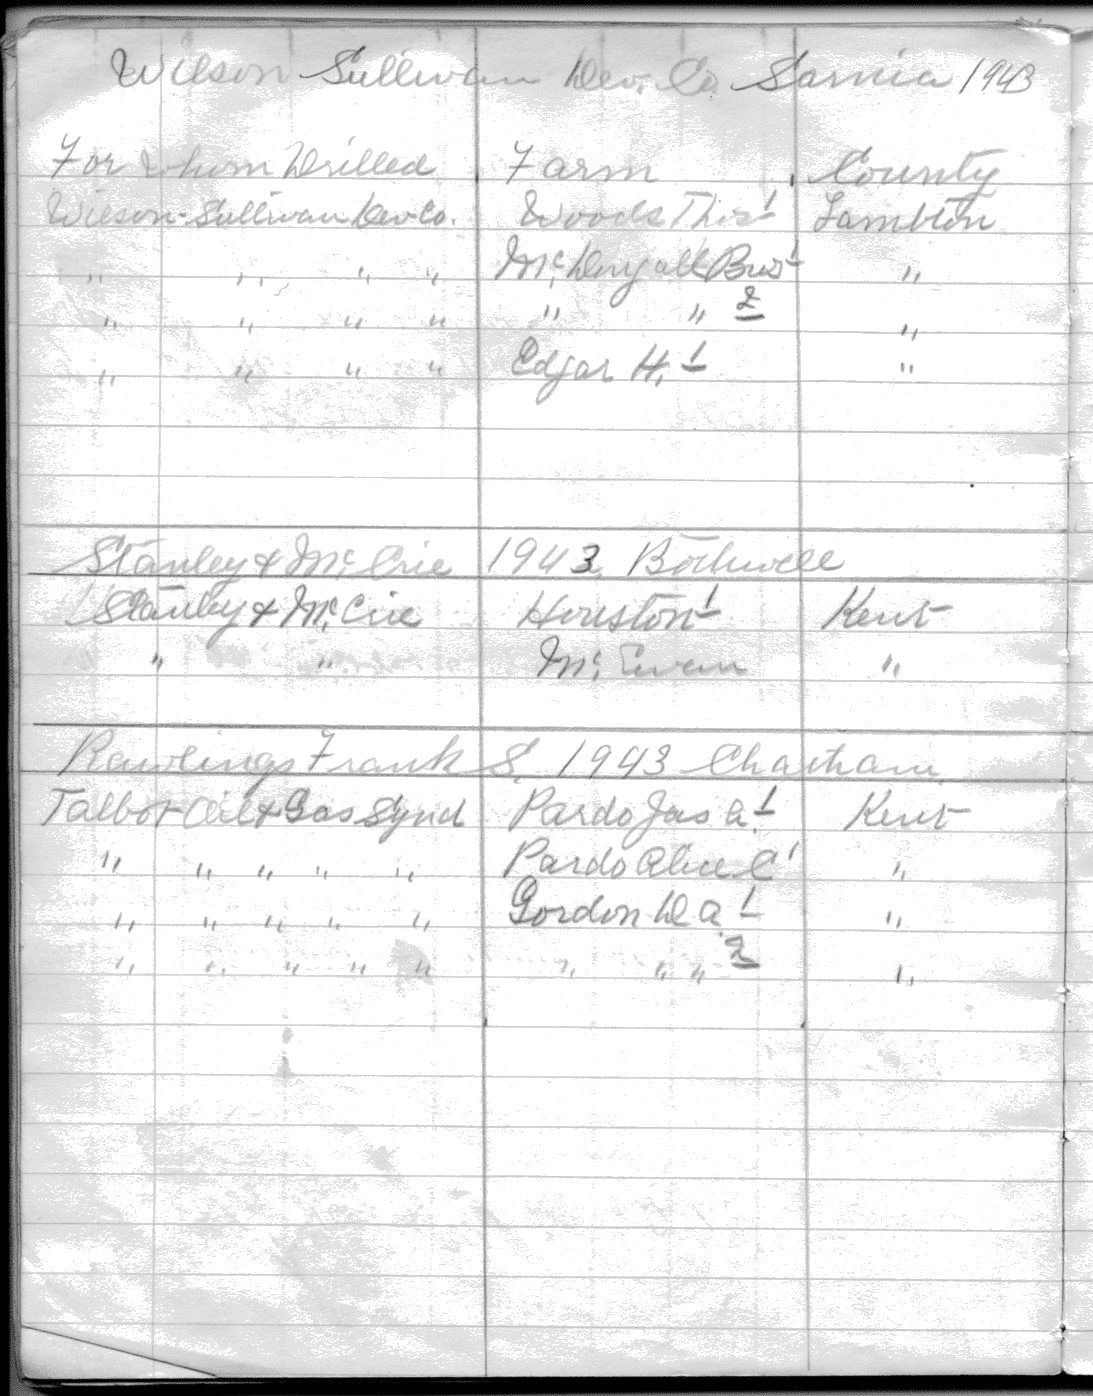 Wilson Sullivan Dev. Co. Sarnia 1943
For Whom Drilled Farm County
Wilson-Sullivan Dev Co. Woods Thos 1 Lambton
" " " " McDougall Bros 1 "
" " " " " " 2 "
" " " " Edgar H. 1 "
Stanley & McCrie 1943 Bothwell
Stanley & McCrie Houston 1 Kent
" " McEwan "
Rawlings Frank S. 1943 Chatham
Talbot Oil & Gas Synd Pardo Jas A. 1 Kent
" " " " " Pardo Alice C 1 "
" " " " " Gordon D A. 1 "
" " " " " " " " 2 "